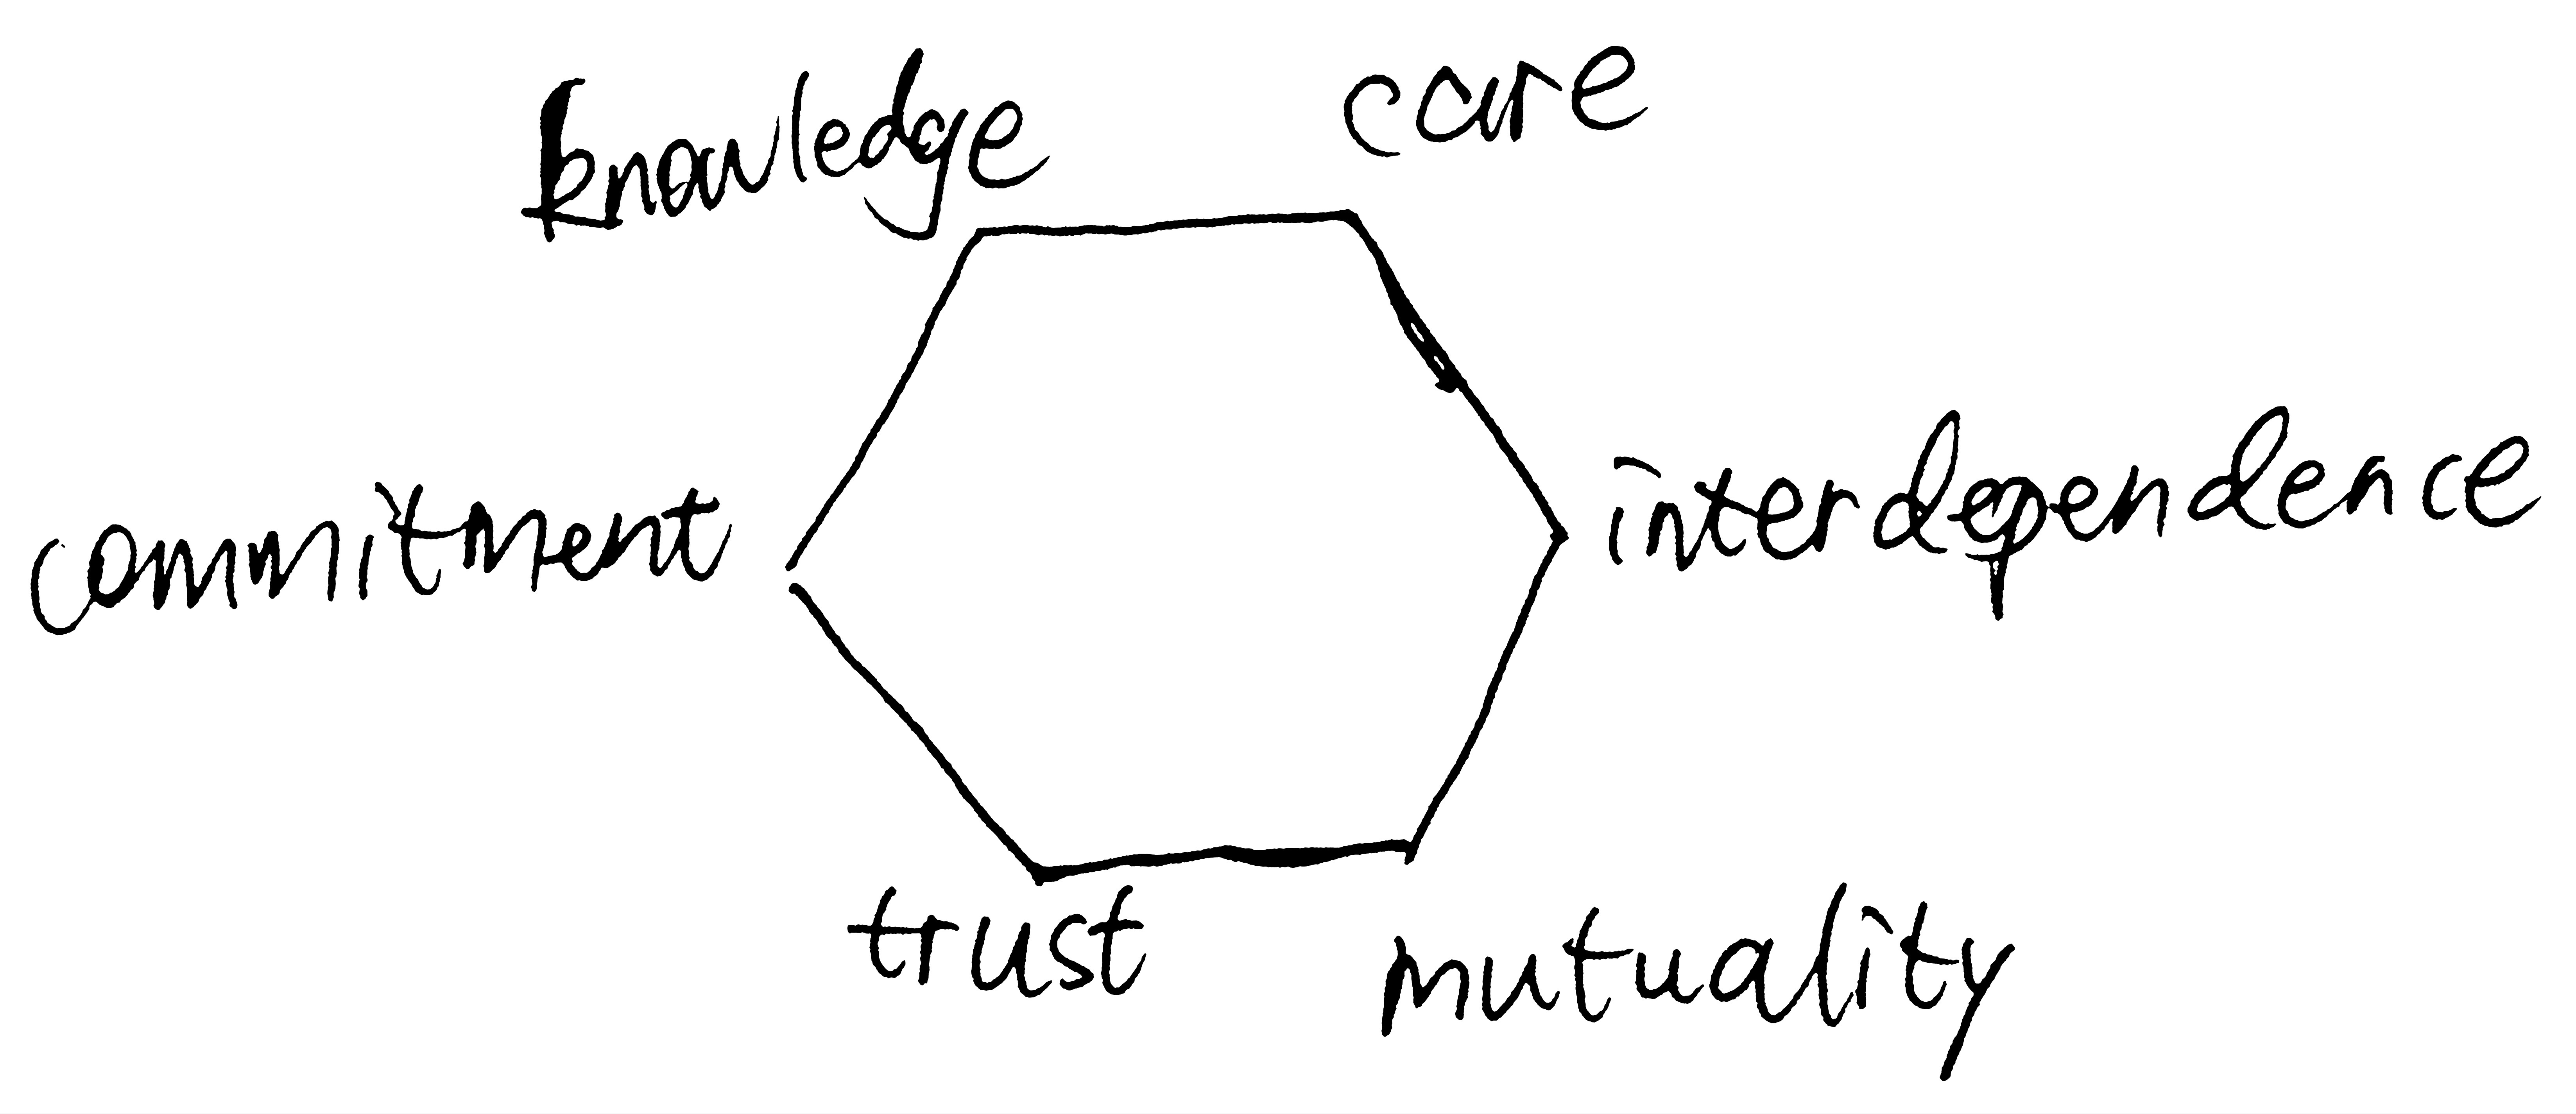 knowledge
care
commitment
interdependence
trust
mutuality